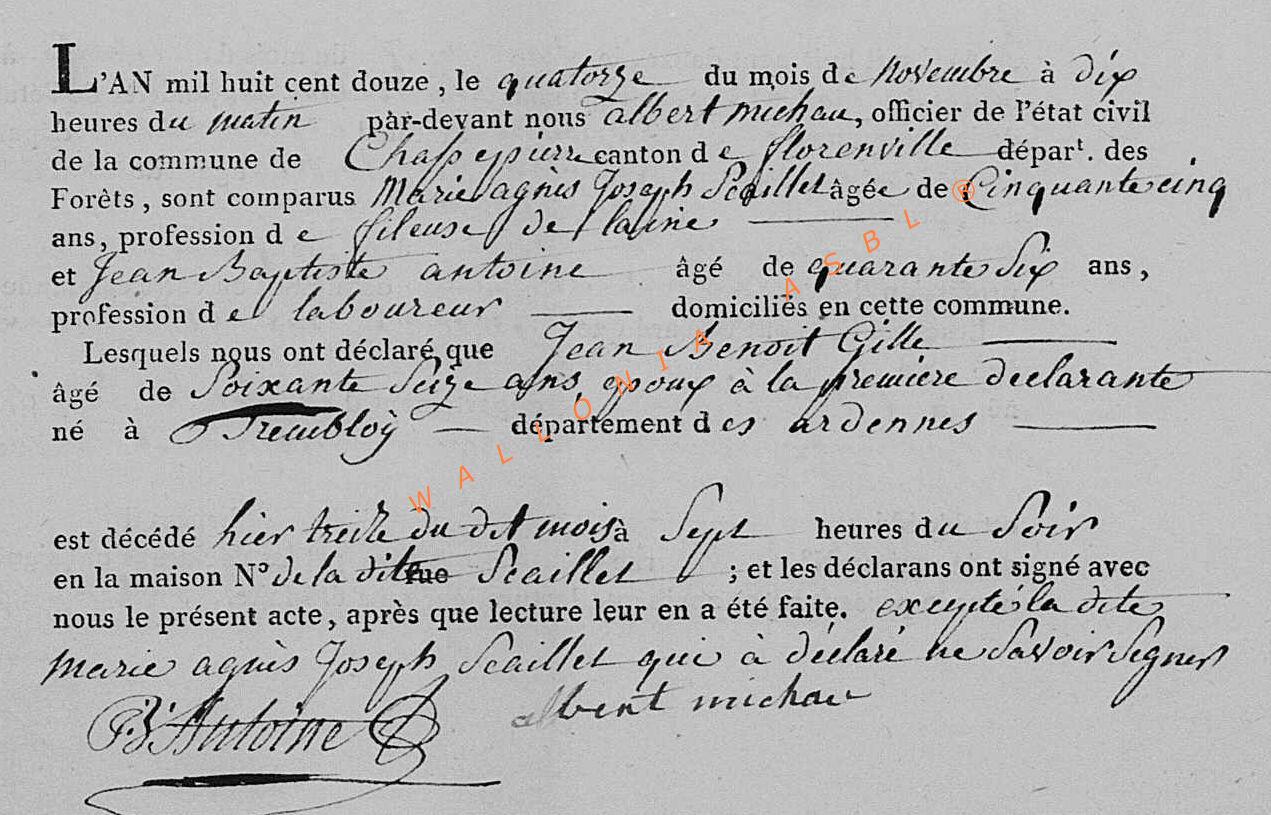 L'AN mil huit cent douze, le quatorze du mois de Novembre à dix
heures du matin par-devant nous albert michau, officier de l'état civil
de la commune de Chassepierre canton de florenville départ. des
Forêts, sont comparus Marie agnès Joseph Scaillet âgée de Cinquante cinq
ans, profession de fileuse de laine
et Jean Baptiste antoine âgé de quarante Six ans,
profession de laboureur domiciliés en cette commune.
Lesquels nous ont déclaré que Jean Benoit Gille
âgé de Soixante Seize ans, epoux à la première declarante
né à Trembloÿ département des ardennes
est décédé hier treize du dit mois à Sept heures du Soir
en la maison N° de la dite rue Scaillet ; et les déclarans ont signé avec
nous le présent acte, après que lecture leur en a été faite. excepté la dite
Marie agnès Joseph Scaillet qui à déclaré ne Savoir Signer
albert michau
JB Antoine
@ WALLONIA ASBL